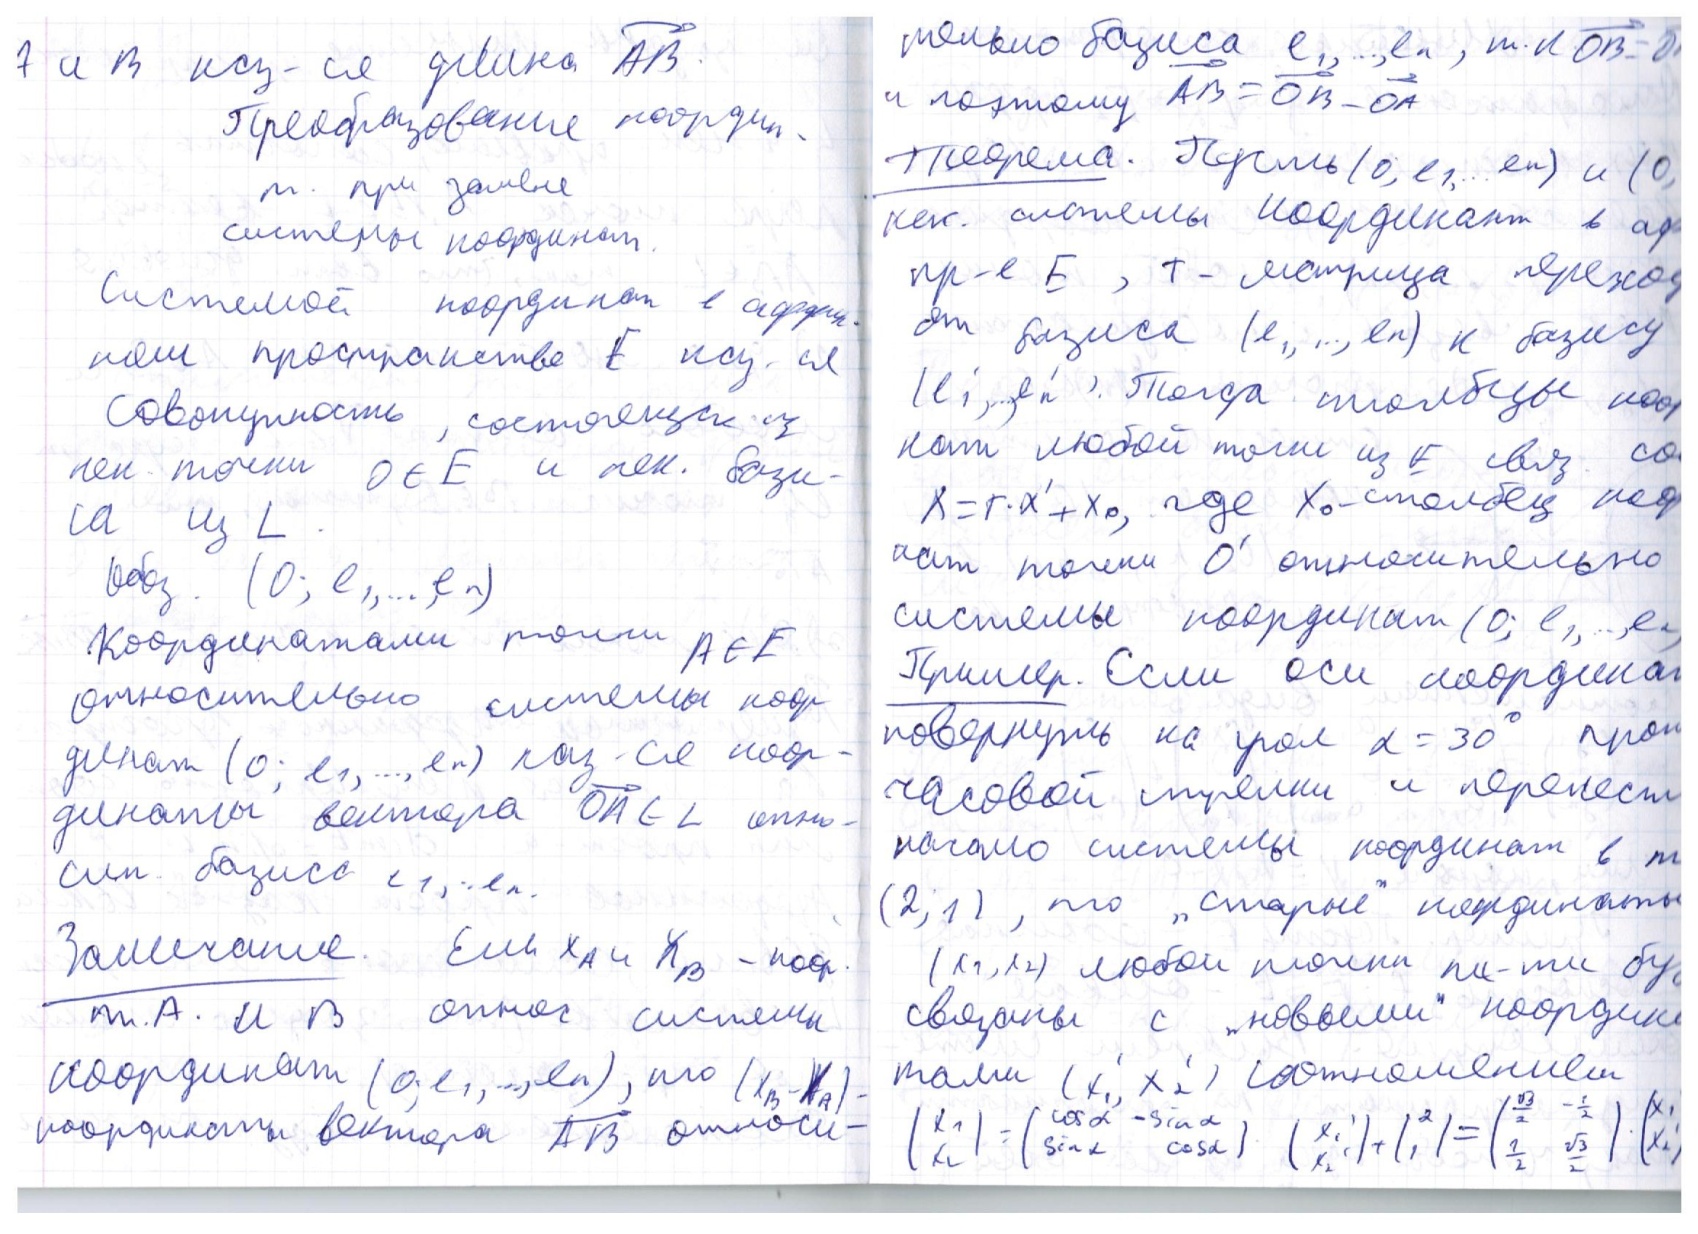 и B наз-ся длина AB.
Преобразование координ.
т. при замене
системы координат.
Системой координат в аффин-
ном пространстве E наз-ся
Совокупность, состоящая из
нек. точки O ∈ E и нек. бази-
са из L.
Обоз. (O; e1,...,en)
Координатами точки A ∈ E
относительно системы коор
динат (O; e1,...,en) наз-ся коор-
динаты вектора OA ∈ L отно-
сит. базиса e1,..en.
Замечание. Если xA и XB - коор.
т. A. и B относ системы
координат (O; e1,...,en), то (xB - XA) -
координаты вектора AB относи-
только базиса e1,...,en, т.к OB =
и поэтому AB = OB - OA
Теорема. Пусть (O; e1,...en) и (O,
нек. системы координат в аф
пр-е E, T - матрица перехо
от базиса (e1,...,en) к базису
(e'1,...,e'n). Тогда столбцы коор
нат любой точки из E связ. со
X = T·X' + X0, где X0 - столбец коор
нат точки O' относительно
системы координат (O; e1,...,en,
Пример. Если оси координат
повернуть на угол α = 30° прот
часовой стрелки и перенести
начало системы координат в т
(2; 1), то „старые" координаты
(x1, x2) любой точки пл-ти бу
связаны с „новыми" координа
тами (x1', x2') соотношением
(x1 x2) = (cosα -sinα sinα cosα) · (x1' x2') + (2 1) = (√3/2 -1/2 1/2 √3/2) · (x1' x2')